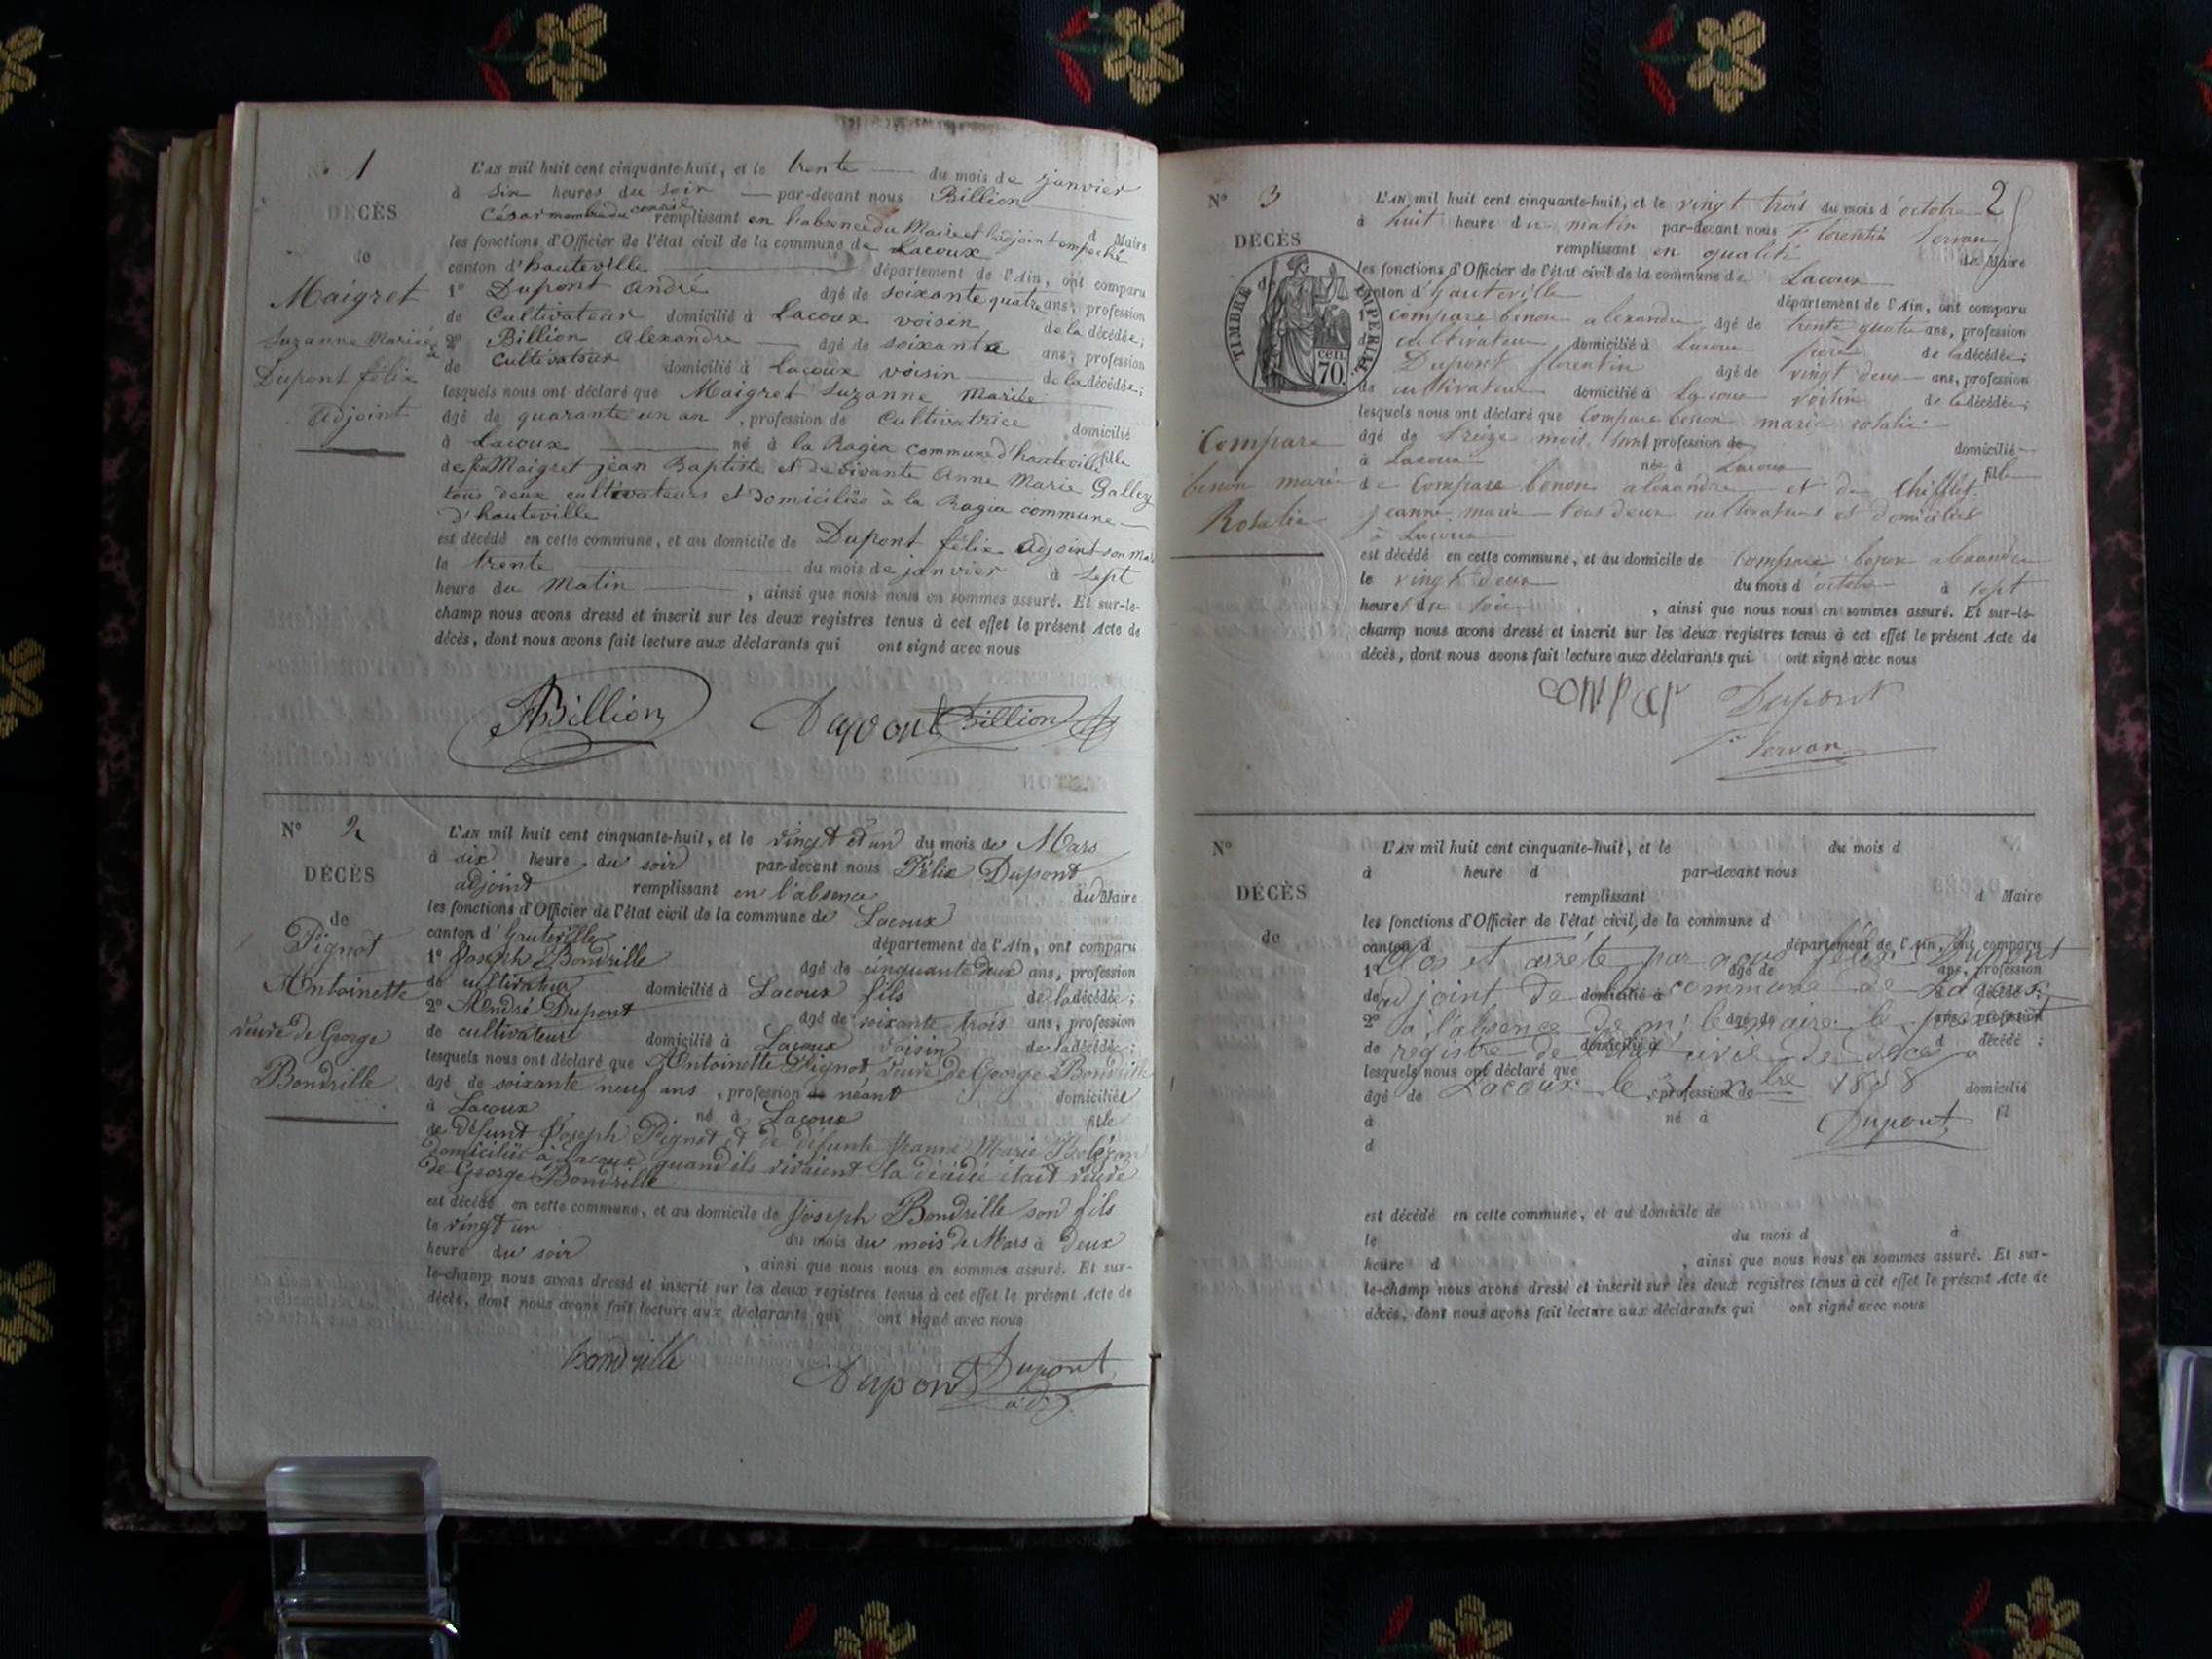 N° 1
DÉCÈS
de
Maigret
Suzanne Mariée
à
Dupont félix
adjoint
L'AN mil huit cent cinquante-huit, et le trente du mois de janvier
à six heures du soir par-devant nous Billion
César membre du conseil remplissant en l'absence du Maire et l'adjoint empeché d Maire
les fonctions d'Officier de l'état civil de la commune de Lacoux
canton d'hauteville département de l'Ain, ont comparu
1° Dupont andré âgé de soixante quatre ans, profession
de Cultivateur domicilié à Lacoux voisin de la décédée;
2° Billion alexandre âgé de soixante ans, profession
de Cultivateur domicilié à Lacoux voisin de la décédée;
lesquels nous ont déclaré que Maigret Suzanne Marie
âgé de quarante un an, profession de Cultivatrice domicilié
à Lacoux né à la Ragia commune d'hauteville fille
de feu Maigret jean Baptiste et de vivante Anne Marie Galley
tous deux cultivateurs et domiciliés à la Ragia commune
d'hauteville
est décédé en cette commune, et au domicile de Dupont félix adjoint son mari
le trente du mois de janvier à sept
heure du matin, ainsi que nous nous en sommes assuré. Et sur-le-
champ nous avons dressé et inscrit sur les deux registres tenus à cet effet le présent Acte de
décès, dont nous avons fait lecture aux déclarants qui ont signé avec nous
Billion Dupont Billion
N° 2
DÉCÈS
de
Pignot
Antoinette
veuve de George
Bondrille
L'AN mil huit cent cinquante-huit, et le vingt et un du mois de Mars
à six heure du soir par-devant nous Félix Dupont
adjoint remplissant en l'absence du Maire
les fonctions d'Officier de l'état civil de la commune de Lacoux
canton d'hauteville département de l'Ain, ont comparu
1° Joseph Bondrille âgé de cinquante deux ans, profession
de cultivateur domicilié à Lacoux fils de la décédée;
2° André Dupont âgé de soixante trois ans, profession
de cultivateur domicilié à Lacoux voisin de la décédée;
lesquels nous ont déclaré que Antoinette Pignot veuve de George Bondrille
âgé de soixante neuf ans, profession de néant domiciliée
à Lacoux né à Lacoux fille
de défunt Joseph Pignot et de défunte Jeanne Marie
domiciliés à Lacoux quand ils vivaient la décédée était veuve
de George Bondrille
est décédé en cette commune, et au domicile de Joseph Bondrille son fils
le vingt un du mois du mois de Mars à deux
heure du soir, ainsi que nous nous en sommes assuré. Et sur-
le-champ nous avons dressé et inscrit sur les deux registres tenus à cet effet le présent Acte de
décès, dont nous avons fait lecture aux déclarants qui ont signé avec nous
Bondrille Dupont Dupont
adj.
2
N° 3
DÉCÈS
TIMBRE IMPÉRIAL
cen. 70.
Compare
benon marie
Rosalie
L'AN mil huit cent cinquante-huit, et le vingt trois du mois d'octobre
à huit heure du matin par-devant nous Florentin Servan
remplissant en qualité de Maire
les fonctions d'Officier de l'état civil de la commune de Lacoux
canton d'hauteville département de l'Ain, ont comparu
1° Compare benon alexandre âgé de trente quatre ans, profession
de cultivateur domicilié à Lacoux père de la décédée;
Dupont florentin âgé de vingt deux ans, profession
de cultivateur domicilié à Lacoux voisin de la décédée;
lesquels nous ont déclaré que Compare benon marie rosalie
âgé de treize mois sans profession de domicilié
à Lacoux née à Lacoux fille
de Compare benon alexandre et de Chifflet
jeanne marie tous deux cultivateurs et domiciliés
à Lacoux
est décédé en cette commune, et au domicile de Compare benon alexandre
le vingt deux du mois d'octobre à sept
heure du soir, ainsi que nous nous en sommes assuré. Et sur-le-
champ nous avons dressé et inscrit sur les deux registres tenus à cet effet le présent Acte de
décès, dont nous avons fait lecture aux déclarants qui ont signé avec nous
compar Dupont
Servan
N°
DÉCÈS
de
L'AN mil huit cent cinquante-huit, et le du mois d
à heure d par-devant nous
remplissant d Maire
les fonctions d'Officier de l'état civil de la commune d
canton d département de l'Ain, ont comparu
Clos et arrêté par nous félix Dupont
1° âgé de ans, profession
adjoint de la commune de Lacoux
de domicilié à d décédé;
2° âgé de ans, profession
à l'absence de m. le maire le présent
de domicilié à d décédé:
registre de l'état civil de décès a
lesquels nous ont déclaré que
Lacoux le 31 xbre 1858
âgé de, profession de domicilié
à né à fil
Dupont
d
est décédé en cette commune, et au domicile de
le du mois d à
heure d, ainsi que nous nous en sommes assuré. Et sur-
le-champ nous avons dressé et inscrit sur les deux registres tenus à cet effet le présent Acte de
décès, dont nous avons fait lecture aux déclarants qui ont signé avec nous